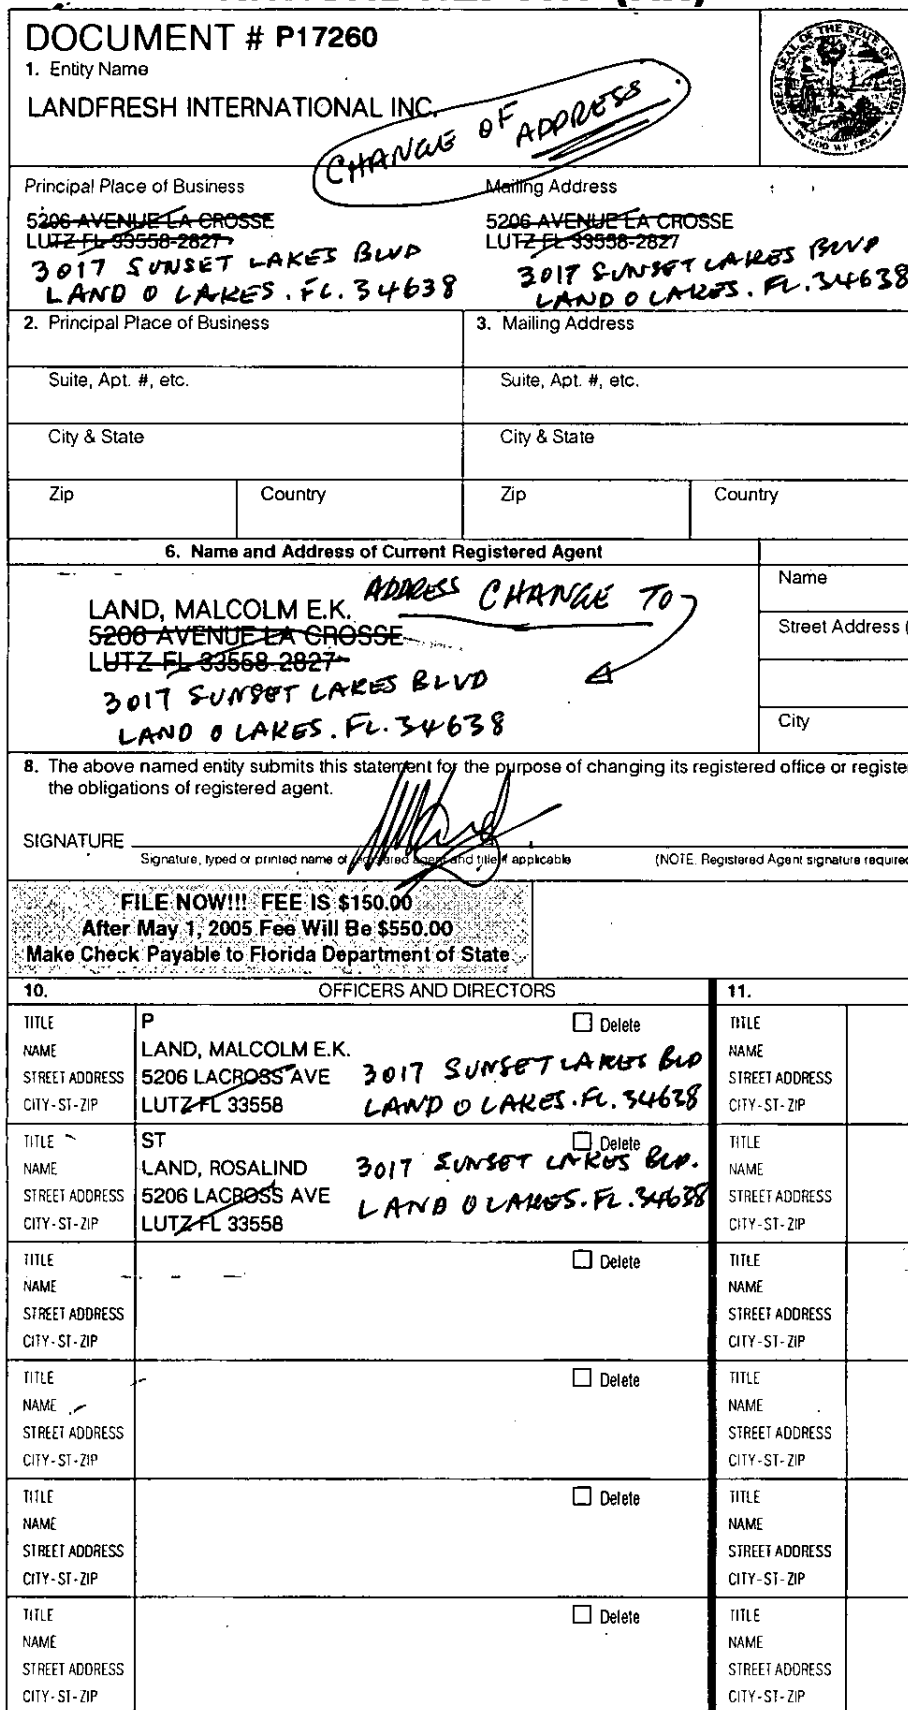 DOCUMENT # P17260
1. Entity Name
LANDFRESH INTERNATIONAL INC.
CHANGE OF ADDRESS
GREAT SEAL OF THE STATE OF FLORIDA
IN GOD WE TRUST
Principal Place of Business
5206 AVENUE LA CROSSE
LUTZ FL 33558-2827
3017 SUNSET LAKES BLVD
LAND O LAKES. FL. 34638
Mailing Address
5206 AVENUE LA CROSSE
LUTZ FL 33558-2827
3017 SUNSET LAKES BLVD
LAND O LAKES. FL. 34638
2. Principal Place of Business
3. Mailing Address
Suite, Apt. #, etc.
Suite, Apt. #, etc.
City & State
City & State
Zip
Country
Zip
Country
6. Name and Address of Current Registered Agent
ADDRESS CHANGE TO
LAND, MALCOLM E.K.
5206 AVENUE LA CROSSE
LUTZ FL 33558-2827
3017 SUNSET LAKES BLVD
LAND O LAKES. FL. 34638
Name
Street Address (
City
8. The above named entity submits this statement for the purpose of changing its registered office or registe
the obligations of registered agent.
SIGNATURE
Signature, typed or printed name of registered agent and title if applicable
(NOTE. Registered Agent signature required
FILE NOW!!! FEE IS $150.00
After May 1, 2005 Fee Will Be $550.00
Make Check Payable to Florida Department of State
10. OFFICERS AND DIRECTORS
11.
TITLE P Delete
NAME LAND, MALCOLM E.K.
STREET ADDRESS 5206 LACROSS AVE 3017 SUNSET LAKES BLD
CITY-ST-ZIP LUTZ FL 33558 LAND O LAKES. FL. 34638
TITLE
NAME
STREET ADDRESS
CITY-ST-ZIP
TITLE ST Delete
NAME LAND, ROSALIND 3017 SUNSET LAKES BLD.
STREET ADDRESS 5206 LACROSS AVE LAND O LAKES. FL. 34638
CITY-ST-ZIP LUTZ FL 33558
TITLE
NAME
STREET ADDRESS
CITY-ST-ZIP
TITLE Delete
NAME
STREET ADDRESS
CITY-ST-ZIP
TITLE
NAME
STREET ADDRESS
CITY-ST-ZIP
TITLE Delete
NAME
STREET ADDRESS
CITY-ST-ZIP
TITLE
NAME
STREET ADDRESS
CITY-ST-ZIP
TITLE Delete
NAME
STREET ADDRESS
CITY-ST-ZIP
TITLE
NAME
STREET ADDRESS
CITY-ST-ZIP
TITLE Delete
NAME
STREET ADDRESS
CITY-ST-ZIP
TITLE
NAME
STREET ADDRESS
CITY-ST-ZIP